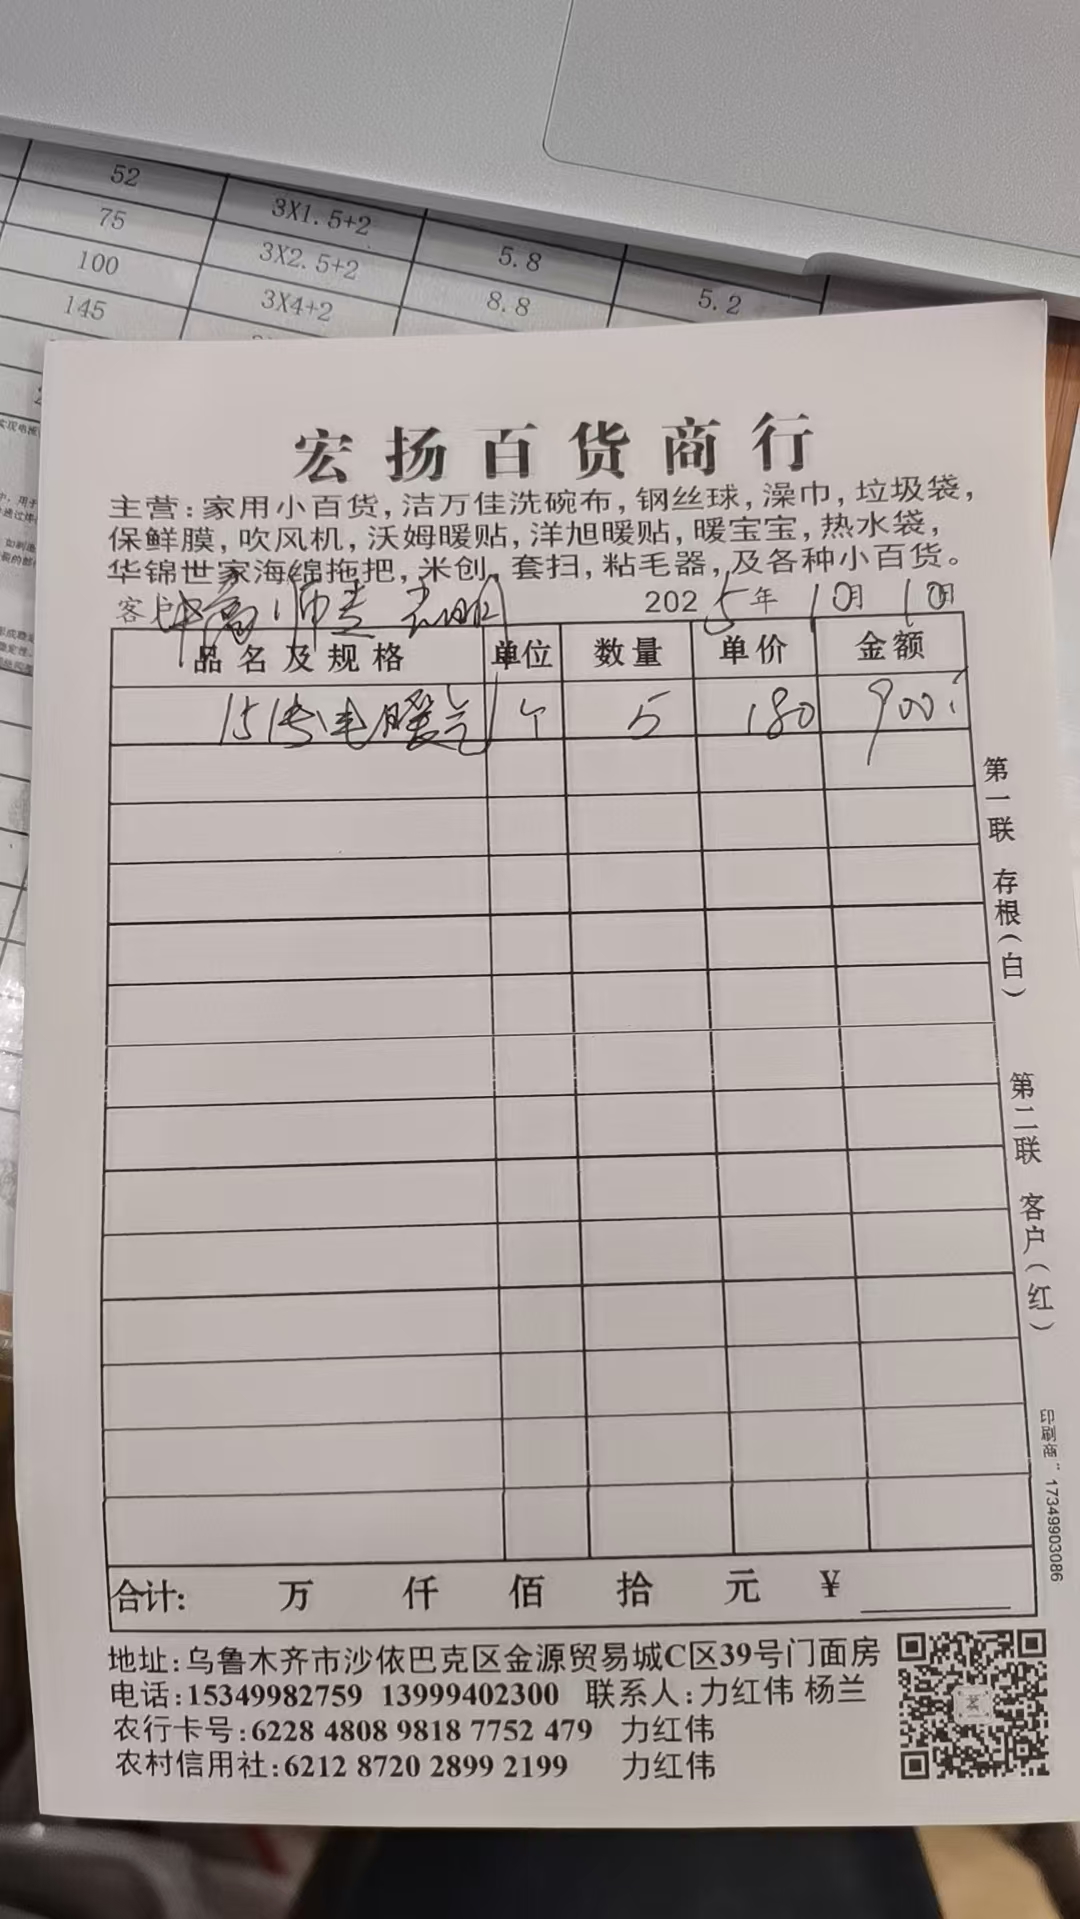 52
75 3X1.5+2
100 3X2.5+2 5.8
145 3X4+2 8.8 5.2
宏扬百货商行
主营:家用小百货,洁万佳洗碗布,钢丝球,澡巾,垃圾袋,
保鲜膜,吹风机,沃姆暖贴,洋旭暖贴,暖宝宝,热水袋,
华锦世家海绵拖把,米创,套扫,粘毛器,及各种小百货。
客户 2025年10月10日
品名及规格 单位 数量 单价 金额
15 电暖气 个 5 180 900
第一联 存根(白)
第二联 客户(红)
印刷商: 17349903086
合计: 万 仟 佰 拾 元 ¥
地址:乌鲁木齐市沙依巴克区金源贸易城C区39号门面房
电话:15349982759 13999402300 联系人:力红伟 杨兰
农行卡号:6228 4808 9818 7752 479 力红伟
农村信用社:6212 8720 2899 2199 力红伟